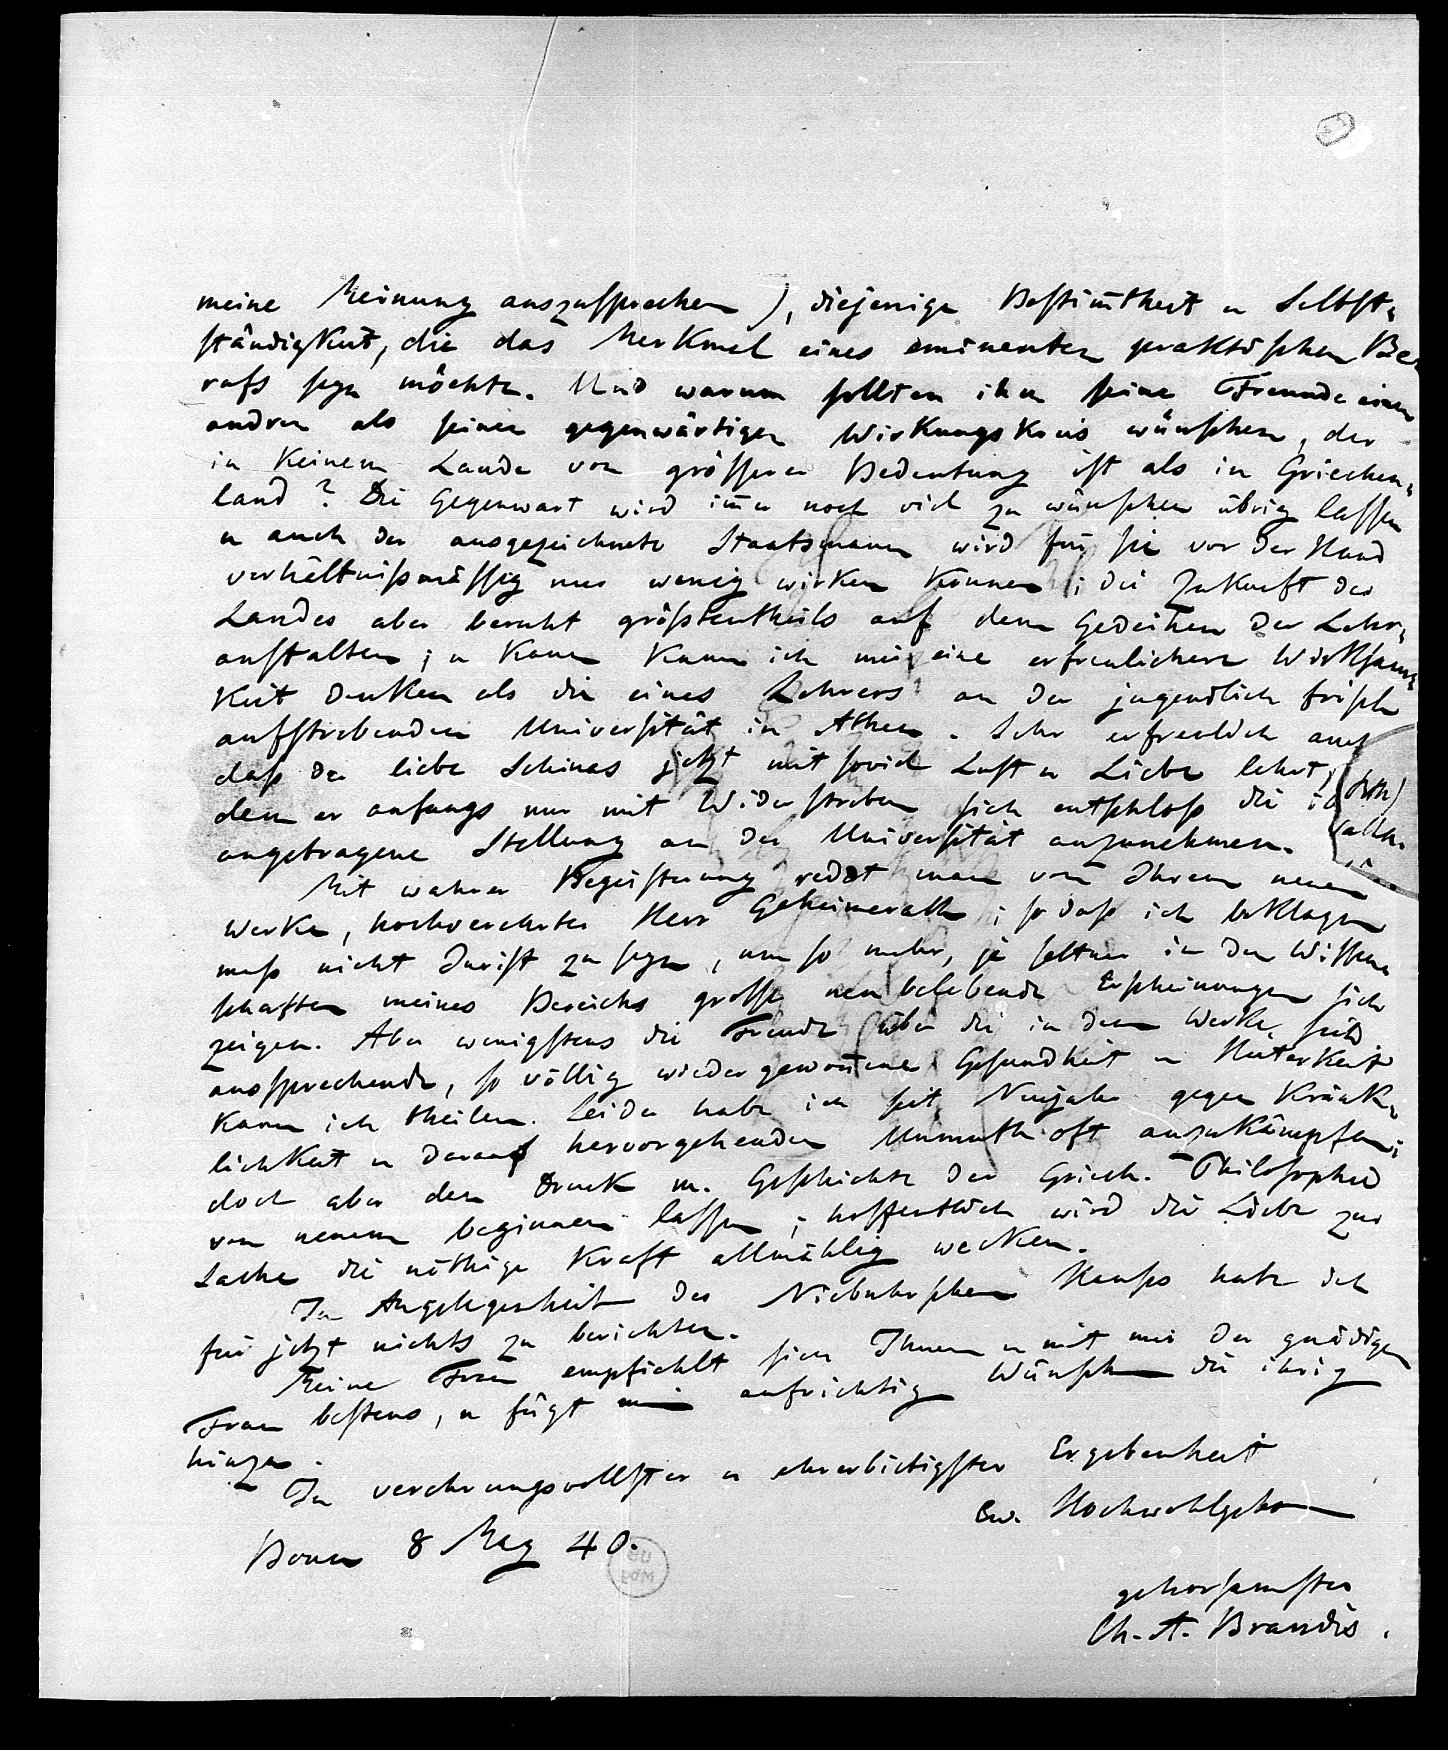 meine Meinung auszusprechen), diejenige Bestim̅theit u Selbst-
ständigkeit, die das Merkmal eines eminenten praktischen Be-
rufs seyn möchte. Und warum sollten ihm seine Freunde einen
andren als seinen gegenwärtigen Wirkungskreis wünschen, der
in keinem Lande von grösserer Bedeutung ist als in Griechen-
land? Die Gegenwart wird im̅er noch viel zu wünschen übrig lassen
u auch der ausgezeichnete Staatsmann wird für sie vor der Hand
verhältnißmässig nur wenig wirken können; die Zukunft des
Landes aber beruht größtentheils auf dem Gedeihen der Lehr-
anstalten; u kaum kann ich mir eine erfreulichere Wirksam-
keit denken als die eines Lehrers an der jugendlich frisch
aufstrebenden Universität in Athen. Sehr erfreulich auch
daß der liebe Schinas jetzt mit soviel Lust u Liebe lehrt,
dem er anfangs nur mit Widerstreben sich entschloß die
angetragene Stellung an der Universität anzunehmen.
Mit wahrer Begeisterung redet man von Ihrem neuen
Werke, hochverehrter Herr Geheimerath; so daß ich beklagen
muß nicht Jurist zu seyn, um so mehr, je seltner in den Wissen-
schaften meines Bereichs grosse neu belebende Erscheinungen sich
zeigen. Aber wenigstens die Freude über die in dem Werke sich
aussprechende, so völlig wiedergewon̅ene Gesundheit u Heiterkeit
kann ich theilen. Leider habe ich seit Neujahr gegen Kränk-
lichkeit u daraus hervorgehenden Unmuth oft anzukämpfen;
doch aber den Druck m. Geschichte der Griech. Philosophie
von neuem beginnen lassen; hoffentlich wird die Liebe zur
Sache die nöthige Kraft allmählig wecken.
In Angelegenheit des Niebuhrschen Hauses habe ich
für jetzt nichts zu berichten.
Meine Frau empfiehlt sich Ihnen u mit mir der gnädigen
Frau bestens, u fügt aufrichtig Wünschen die ihrig
hinzu.
In verehrungsvollster u ehrerbietigster Ergebenheit
Ew. Hochwohlgeb
Bonn 8 May 40.
gehorsamster
Ch. A. Brandis.